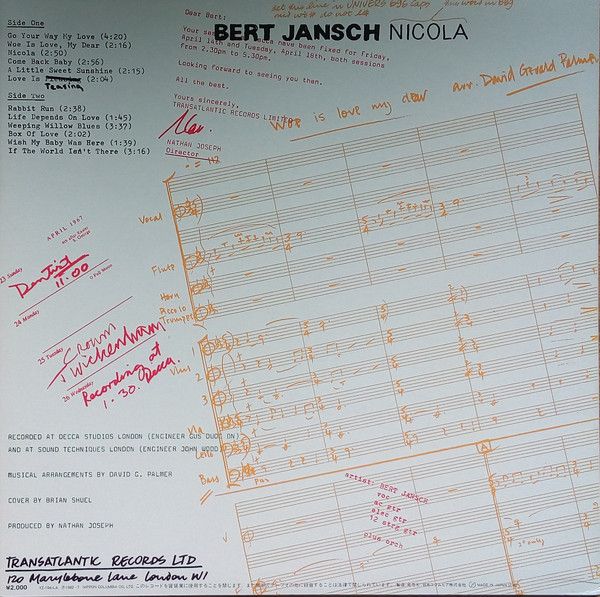 Side One
Go Your Way My Love (4:20)
Woe is Love, My Dear (2:16)
Nicola (2:50)
Come Back Baby (2:56)
A Little Sweet Sunshine (2:15)
Love Is (2:04)
Teasing
Side Two
Rabbit Run (2:38)
Life Depends On Love (1:45)
Weeping Willow Blues (3:37)
Box Of Love (2:02)
Wish My Baby Was Here (1:39)
If The World Isn't There (3:16)
Dear Bert;
have been fixed for Friday,
April 14th and Tuesday, April 18th, both sessions
from 2.30pm to 5.30pm.
Looking forward to seeing you then.
All the best.
Yours sincerely,
TRANSATLANTIC RECORDS LIMITED
NATHAN JOSEPH
Director
BERT JANSCH NICOLA
Woe is love my dear arr. David Gerald Palmer
Vocal
Flute
Horn
Piccolo
Trumpet
1
Vlns
2
3
Vla
Cello
Bass
A
APRIL 1967
23 Sunday
Dentist
11.00
24 Monday
25 Tuesday
Crown
Twickenham
26 Wednesday
Recording at
1.30. Decca.
artist: BERT JANSCH
voc
ac gtr
elec gtr
12 strg gtr
plus orch
RECORDED AT DECCA STUDIOS LONDON (ENGINEER GUS DUDGEON)
AND AT SOUND TECHNIQUES LONDON (ENGINEER JOHN WOOD)
MUSICAL ARRANGEMENTS BY DAVID G. PALMER
COVER BY BRIAN SHUEL
PRODUCED BY NATHAN JOSEPH
TRANSATLANTIC RECORDS LTD
120 Marylebone Lane London W1
¥2,000